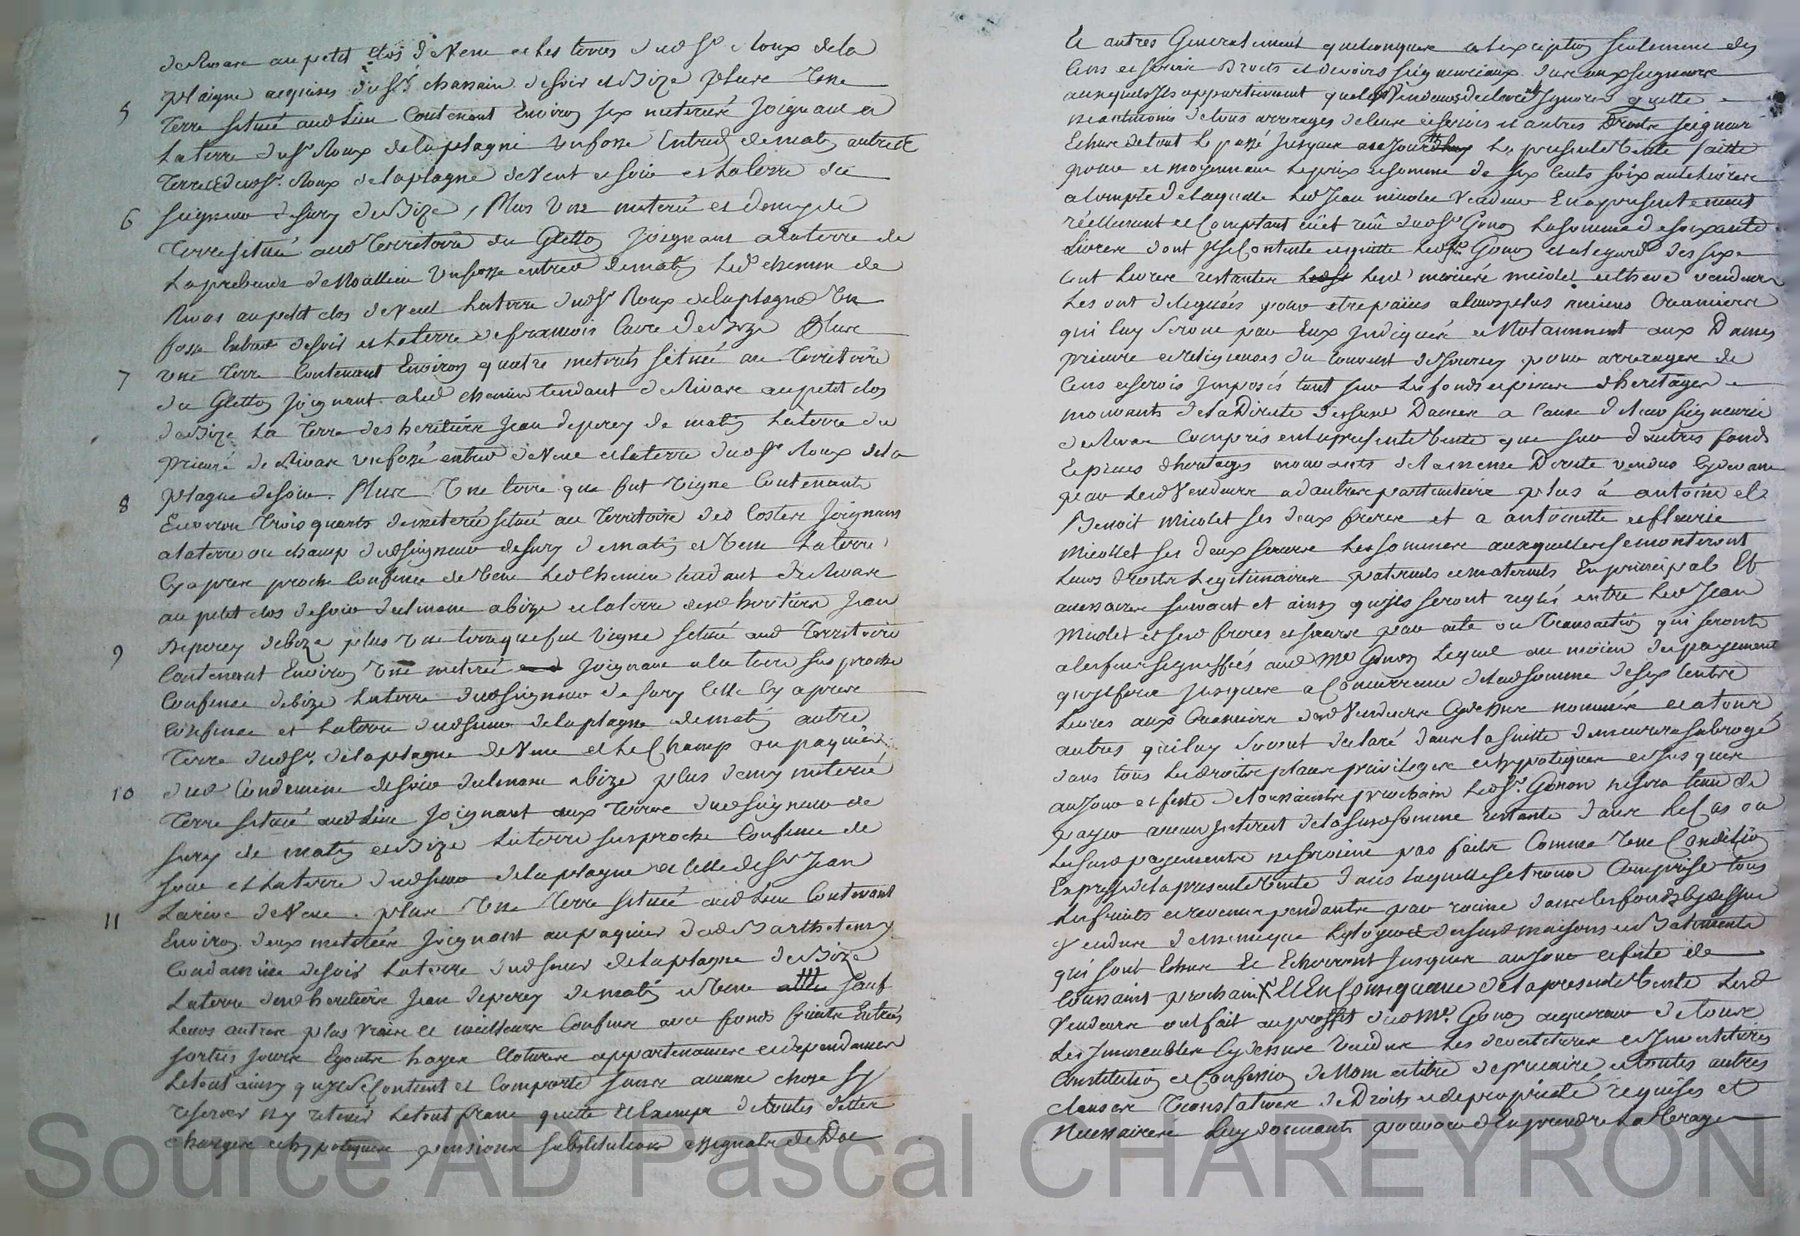 de Rivare au petit clos de Vene et les terres dud Sr Roux de la
plaigne acquises du Sr chassain de soir et Bize Pluse Une
5 Terre Scitué aud Lieu Contenant Environ six meterée Joignant a
La terre du Sr Roux de la plagne un fossé Entred de matin autre
Terre dud Sr Roux de la plagne de Vent et soir et La terre du
6 seigneur de Sury de Bize, Plus Une meterée et demy de
Terre situé aud Territoire du Glettoy Joignant a la terre de
La prebende de Moullein un fosse entred de matin Led chemin de
Rivas au petit clos de Vent La terre dud Sr Roux de la plagne Un
fosse Entred de soir et La terre de francois Cave de Bize Pluse
7 Une Terre Contenant Environ quatre meterés Scitué au Territoire
du Glettoy Joignant aud chemin tendant de Rivare au petit clos
de Bize La Terre des heritiers Jean deperey de matin La terre du
Prieuré de Rivare un fossé entred de Vene et la terre dud Sr Roux de la
8 plagne de soir. Pluse Une terre que fut Vigne Contenant
Environ Trois quarts de meterée situé au Territoire des Costere Joignant
a la terre ou champ dud seigneur de Sury de matin et Vene La terre
Cy apres proche Confinee de Vene Led Chemin tendant de Rivare
au petit clos de soir dud mene a bize et la terre desd heritiers Jean
9 Deperey de bize plus Une terre que fut Vigne scitué aud Territoire
Contenant Environ Une meterée Joignant a la terre sus proche
Confinee de bize La terre dud seigneur de Sury Celle Cy apres
Confinee et La terre dud sieur de la plagne de matin autre
Terre dud Sr de la plagne de Vene et Le Champ ou paquier
10 dud Condemine de soir dud mene a bize plus demy meterée
Terre situé aud Lieu Joignant aux Terres dud seigneur de
Sury de matin et Bize La terre sus proche Confinee de
soir et La terre dud sieur de la plagne et celle de Sr Jean
11 Larive de Vene. plus Une Terre Scitué aud Lieu Contenant
Environ deux meterée Joignant au paquier dud Barthelemy
Condamine de soir La terre dud sieur de la plagne de Bize
La terre desd heritiers Jean deperey de matin et Vene sauf
Leurs autres plus Vraix et meilleurs Confins avec fonds fruits Entrées
sorties Jours Egouts hayes Clotures appartenances et dependances
Le tout ainsy quil se Contient et Comporte sans aucune chose sy
reserver ny retenir Le tout franc quitte et Exempt de toutes dettes
charges et hypoteques pensions substitutions assignats de Dot
Et autres Generalement quelconques a l'exception seulement des
Cens et servis Droits et devoirs seigneuriaux dues aux seigneurs
auxquels ils appartiennent que les Vendeurs declarent Ignorer quitte
neantmoins de tous arrerages de leurs et servis et autres Droits seigneur
Echus de tout Le passé Jusques au Jourdhuy La presente Vente faitte
pour et moyennant Le prix et somme de six Cents soixante Livres
a Compte de laquelle Led Jean micolet Vendeur En a presentement
réellement et Comptant eüt et reçû dud Sr Gonon La somme de soixante
Livres dont Il se Contente et quitte Led Sr Gonon et a l'egard des six
Cent Livres restantes Led marieé micolet et theve vendeurs
Les ont deleguées pour etre paiées a leurs plus anciens Creanciers
qui luy seront par Eux Indiqués et Notamment aux Dames
prieure et religieuses du Couvent de Jourcey pour arrerages de
Cens et servis Imposés tant sur Les fonds et pieces dheritages
mouvants de la Directe desdites Dames a Cause de leur seigneurie
de Rivas Compris en la presente Vente que sur d'autres fonds
Et pieces dheritages mouvants de la mesme Directe vendus Cy devant
par Led Vendeurs a d'autres particuliers plus à antoine et
Benoit Micolet ses deux freres et a antoinette et fleurie
Micollet ses deux soeurs Les sommes auxquelles se monteront
Leurs droits Legitimaires paternels et maternels En principal Et
accessoires suivant et ainsy quils seront reglés entre Led Jean
Micolet et ses freres et soeurs par acte ou Transaction qui seront
a leur frais signiffiés aud Me Gonon Lequel au moien du payement
quil fera Jusques a Concurrence de lad somme de six Centre
Livres aux Creanciers desd Vendeurs Cy dessus nommés et a tous
autres quil luy seront declaré dans la suitte demeurera subrogé
dans tous Les droits places privileges et hypoteques et Jusques
au Jour et feste de Toussaints prochain Led Sr Gonon ne sera tenu de
payer aucun Interest de la susd somme restante dans Le Cas ou
Lesd payements ne seroient pas faits Comme Une Condition
Expresse de la presente Vente dans laquelle se trouve Comprise tous
Les fruits et revenus pendants par racine dans les fonds Cy dessus
Vendus de meme que Les loyers desd maisons et Batiments
qui sont Echus Et Echerront Jusques au Jour et feste de
Toussaint prochain Et En Consequence de la presente Vente Led
Vendeurs ont fait au proffit dud Me Gonon acquereur de tous
Les Immeubles Cy dessus Vendus Les devestitures et Investitures
Constitution et Confession de Nom et titre de precaire et toutes autres
clauses Translatives de Droits et de propriété requises et
Necessaires Luy donnants pouvoir d'en prendre La Vraye
Source AD Pascal CHAREYRON